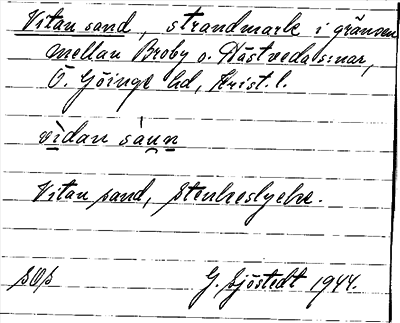 Vitan sand, strandmark i gränsen
mellan Broby o. Hästveda s:nar,
Ö. Göinge hd, Krist. l.
vìdan sáun
Vitan sand, Stenkeslycke.
G. Sjöstedt 1944.